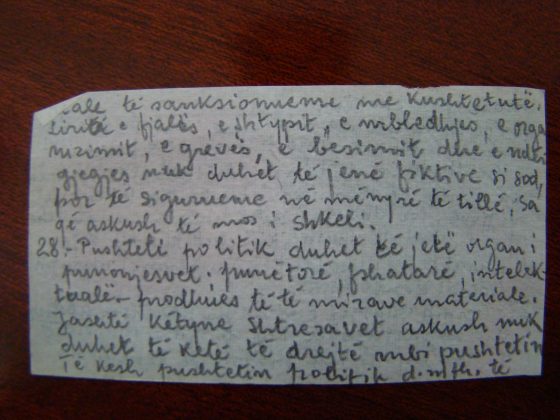 tale të sanksionueme me kushtetutë,
liritë e fjalës, e shtypit, e mbledhjes, e orga
nizimit, e grevës, e besimit dhe e ndër
gjegjes nuk duhet të jenë fiktive si sod,
por të sigurueme në mënyrë të tillë, sa
që askush të mos i shkeli.
28.- Pushteti politik duhet të jetë organ i
punonjesvet. punëtorë, fshatarë, intelek-
tualë - prodhues të të mirave materiale.
Jashtë këtyne shtresavet askush nuk
duhet të ketë të drejtë mbi pushtetin
Të kesh pushtetin politik d.m.th. të